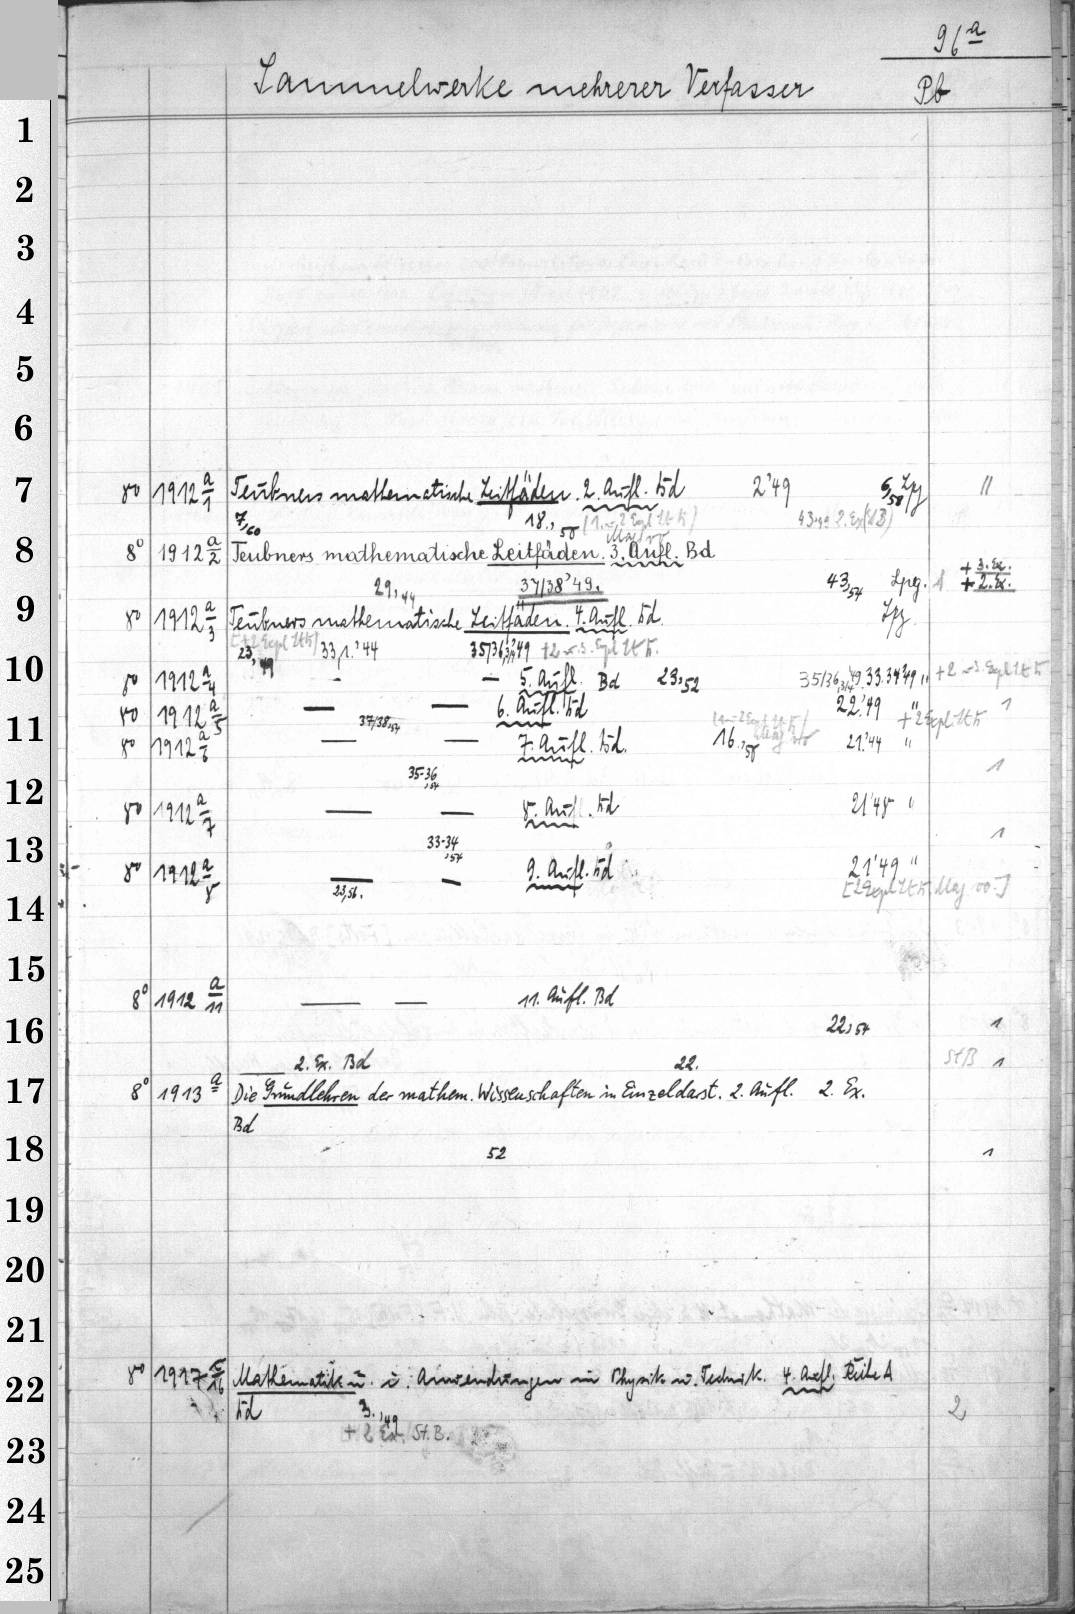 96 a
Sammelwerke mehrerer Verfasser Pb
1
2
3
4
5
6
7 8° 1912 a/1 Teubners mathematische Leitfäden. 2. Aufl. Bd 2,'49 6,58 Lpz "
7,60 18.,58
8 8° 1912 a/2 Teubners mathematische Leitfäden. 3. Aufl. Bd
29,,44 37/38'49. 43,54 Lpzg. + 3. Ex. + 2. Ex.
9 8° 1912 a/3 Teubners mathematische Leitfäden. 4. Aufl. Bd. Lpz
23,,49 33,1.'44 35/36,3/4'49 +2 u. 3. Expl
10 8° 1912 a/4 - — 5. Aufl. Bd 23,52 35/36, 33.34'49 " +2 u 3. Expl
8° 1912 a/5 — — 6. Aufl. Bd 22.'49 " + 2 Expl 1
11 8° 1912 a/6 — 37/38,54 — 7. Aufl. Bd. 16.,58 21.'44 "
35-36,54 1
12 8° 1912 a/7 — — 8. Aufl. Bd 21'48 "
13 33-34,54 1
8° 1912 a/8 — — 9. Aufl. Bd 21'49 "
14 23,56.
15
8° 1912 a/11 — — 11. Aufl. Bd
16 22,54 1
2. Ex. Bd 22. StB 1
17 8° 1913 a Die Grundlehren der mathem. Wissenschaften in Einzeldarst. 2. Aufl. 2. Ex.
Bd
18 52 1
19
20
21
22 8° 1917 /16 Mathematik u. i. Anwendungen in Physik u. Technik. 4. Aufl. Reihe A
Bd 3.,49 2
23 + 2 Ex. St.B.
24
25